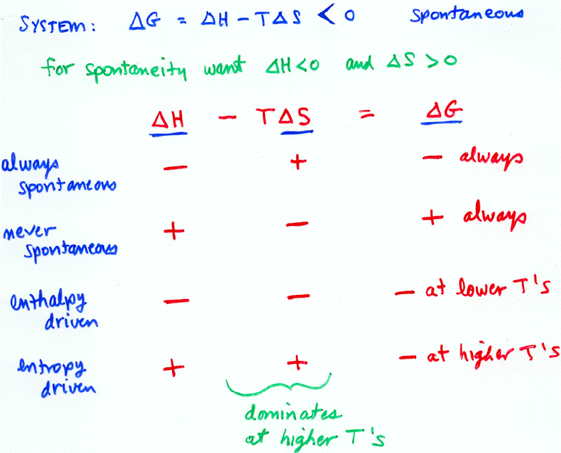 SYSTEM: ΔG = ΔH - TΔS < 0 spontaneous
for spontaneity want ΔH<0 and ΔS>0
ΔH - TΔS = ΔG
always spontaneous - + - always
never spontaneous + - + always
enthalpy driven - - - at lower T's
entropy driven + + - at higher T's
dominates
at higher T's